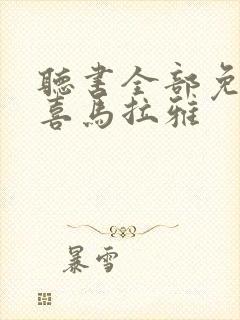 聽書全部免
喜馬拉雅
暴雪